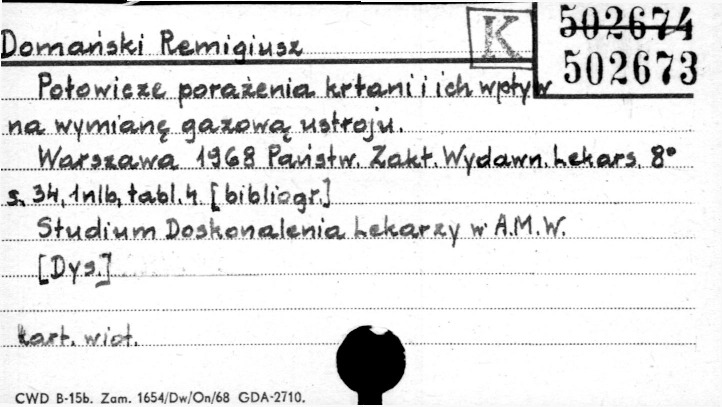 Domański Remigiusz
K
502674
502673
Połowicze porażenia krtani i ich wpływ
na wymianę gazową ustroju.
Warszawa 1968 Państw. Zakł. Wydawn. Lekars. 8°
s. 34, 1nlb, tabl. 4. [bibliogr.]
Studium Doskonalenia Lekarzy w A.M.W.
[Dys.]
kart. wiot.
CWD B-15b. Zam. 1654/Dw/On/68 GDA-2710.